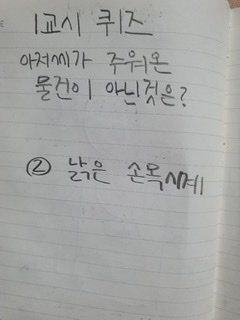 1교시 퀴즈
아저씨가 주워온
물건이 아닌것은?
② 낡은 손목시계